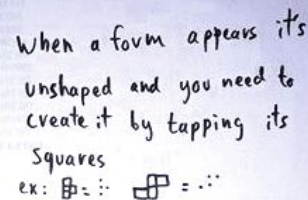 When a form appears it's
unshaped and you need to
create it by tapping its
squares
ex: = =